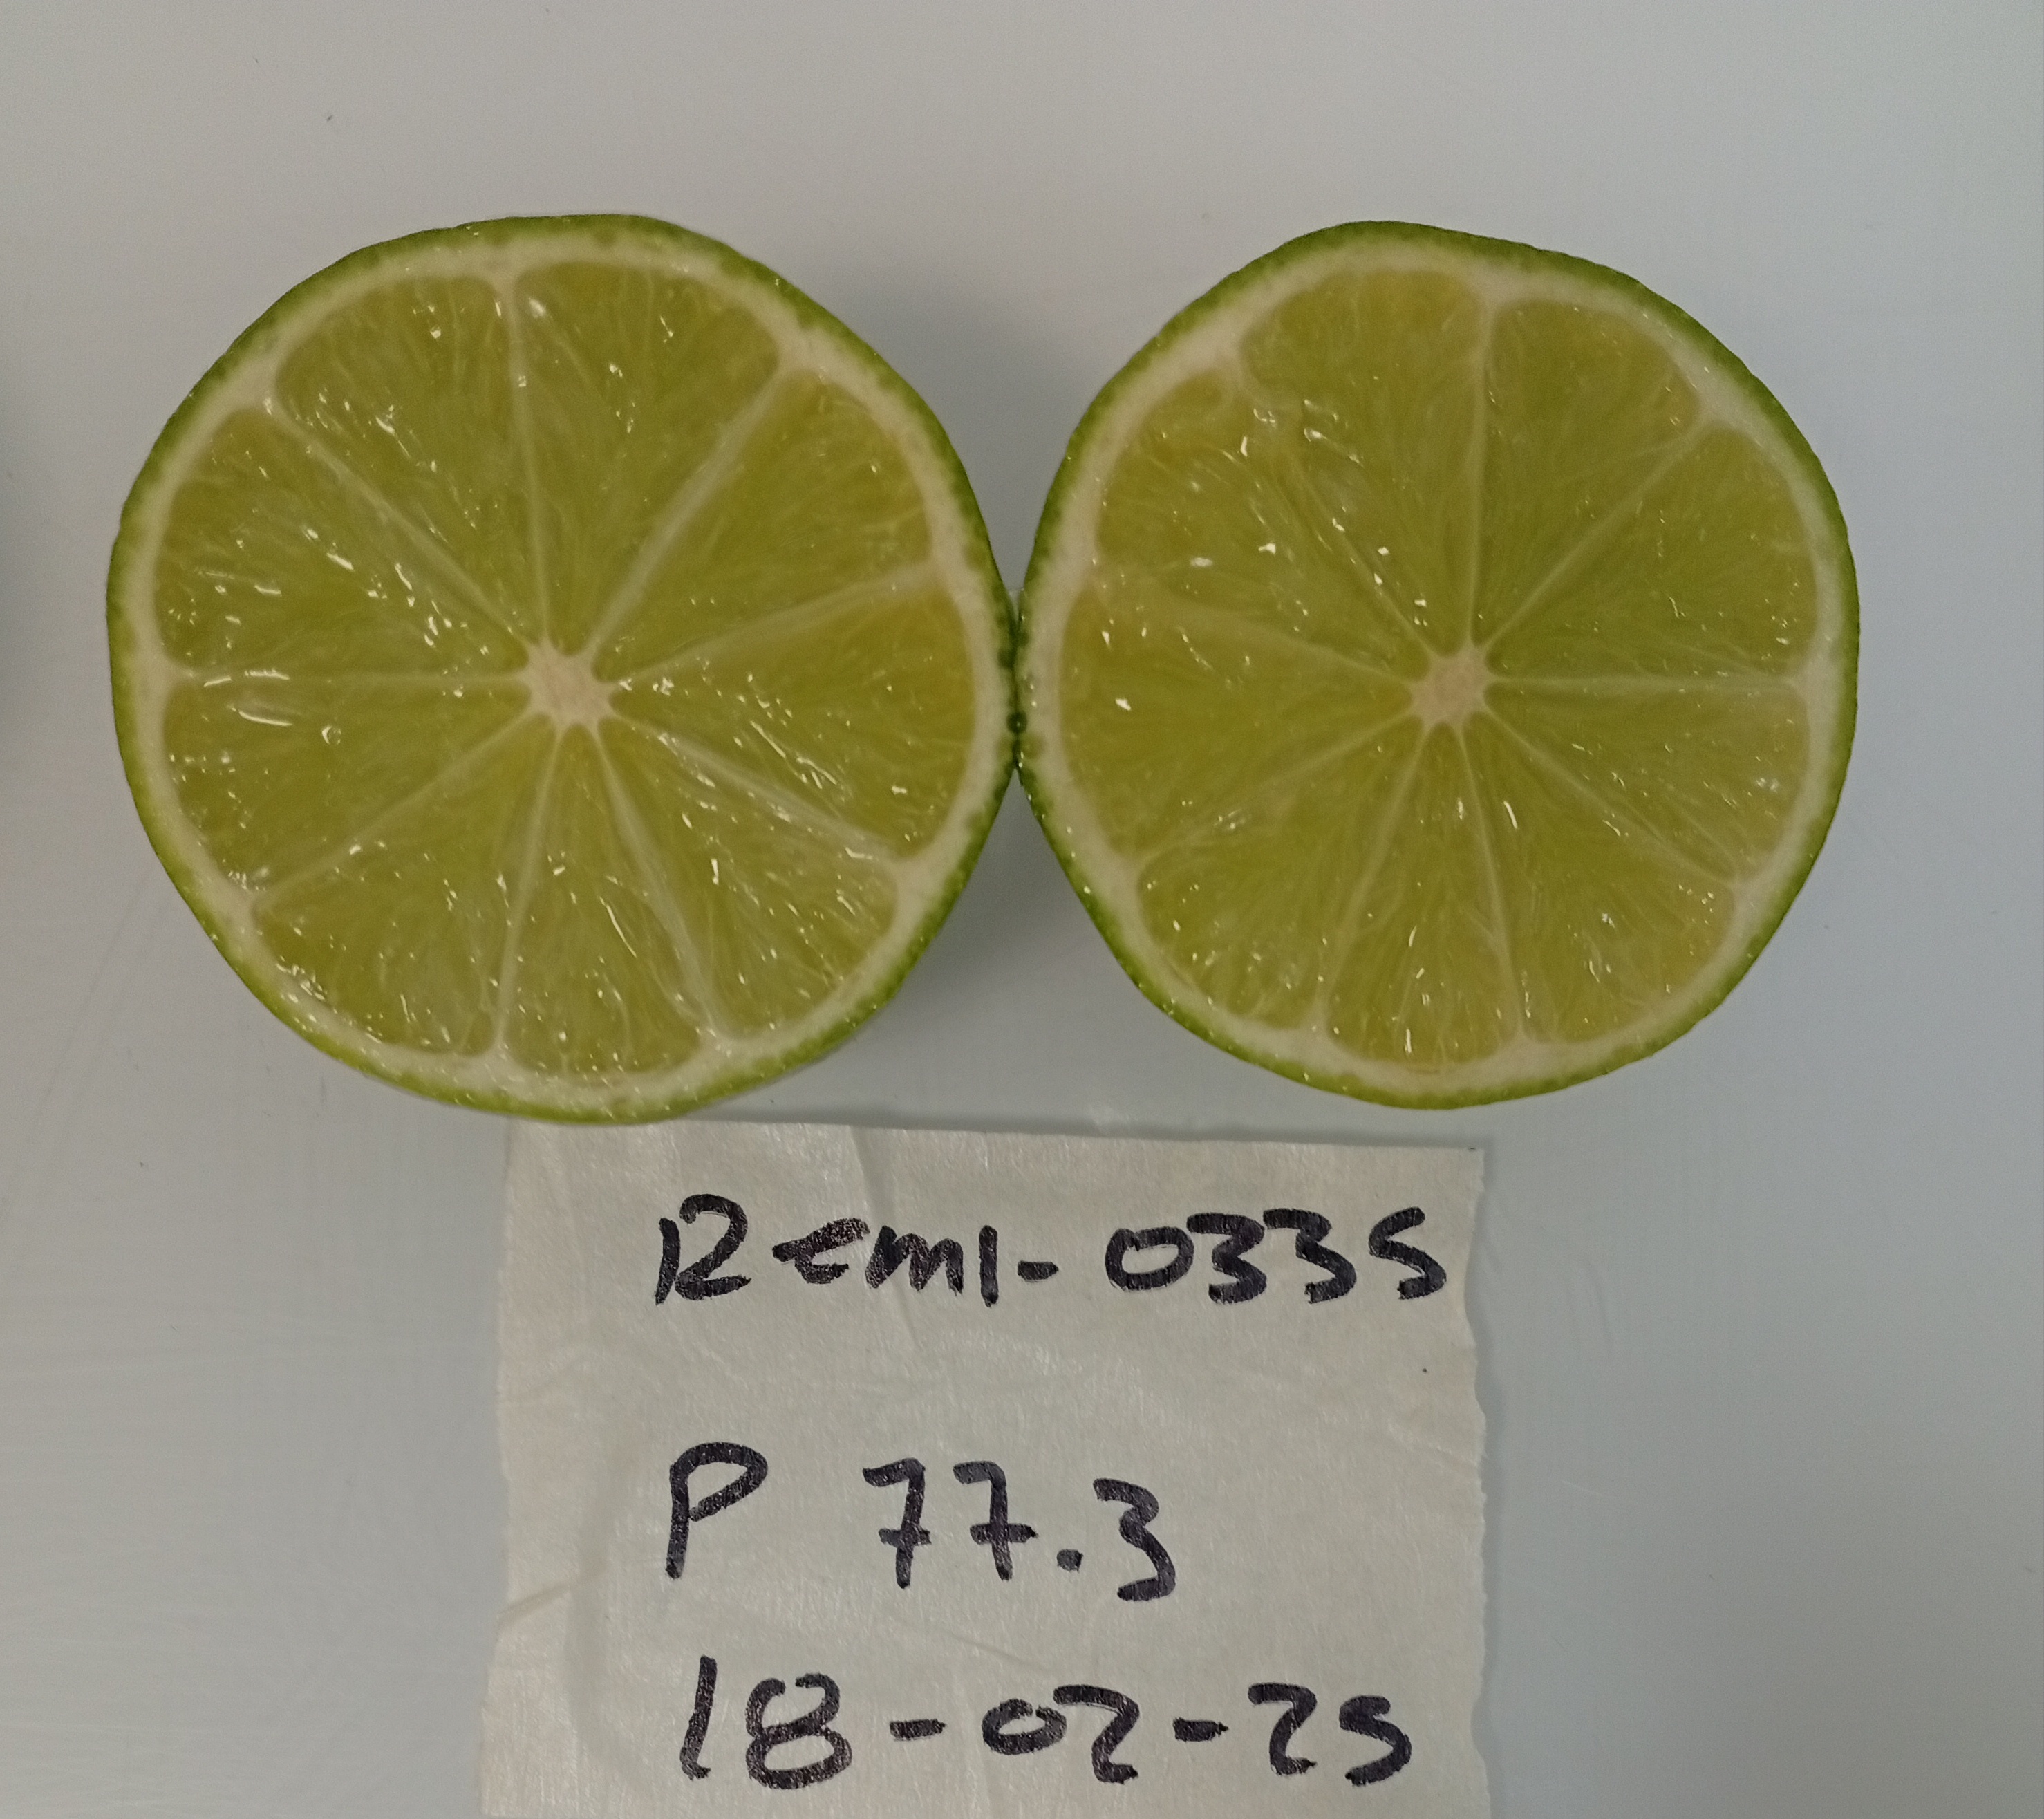 Rem1-0335
P 77.3
18-02-25